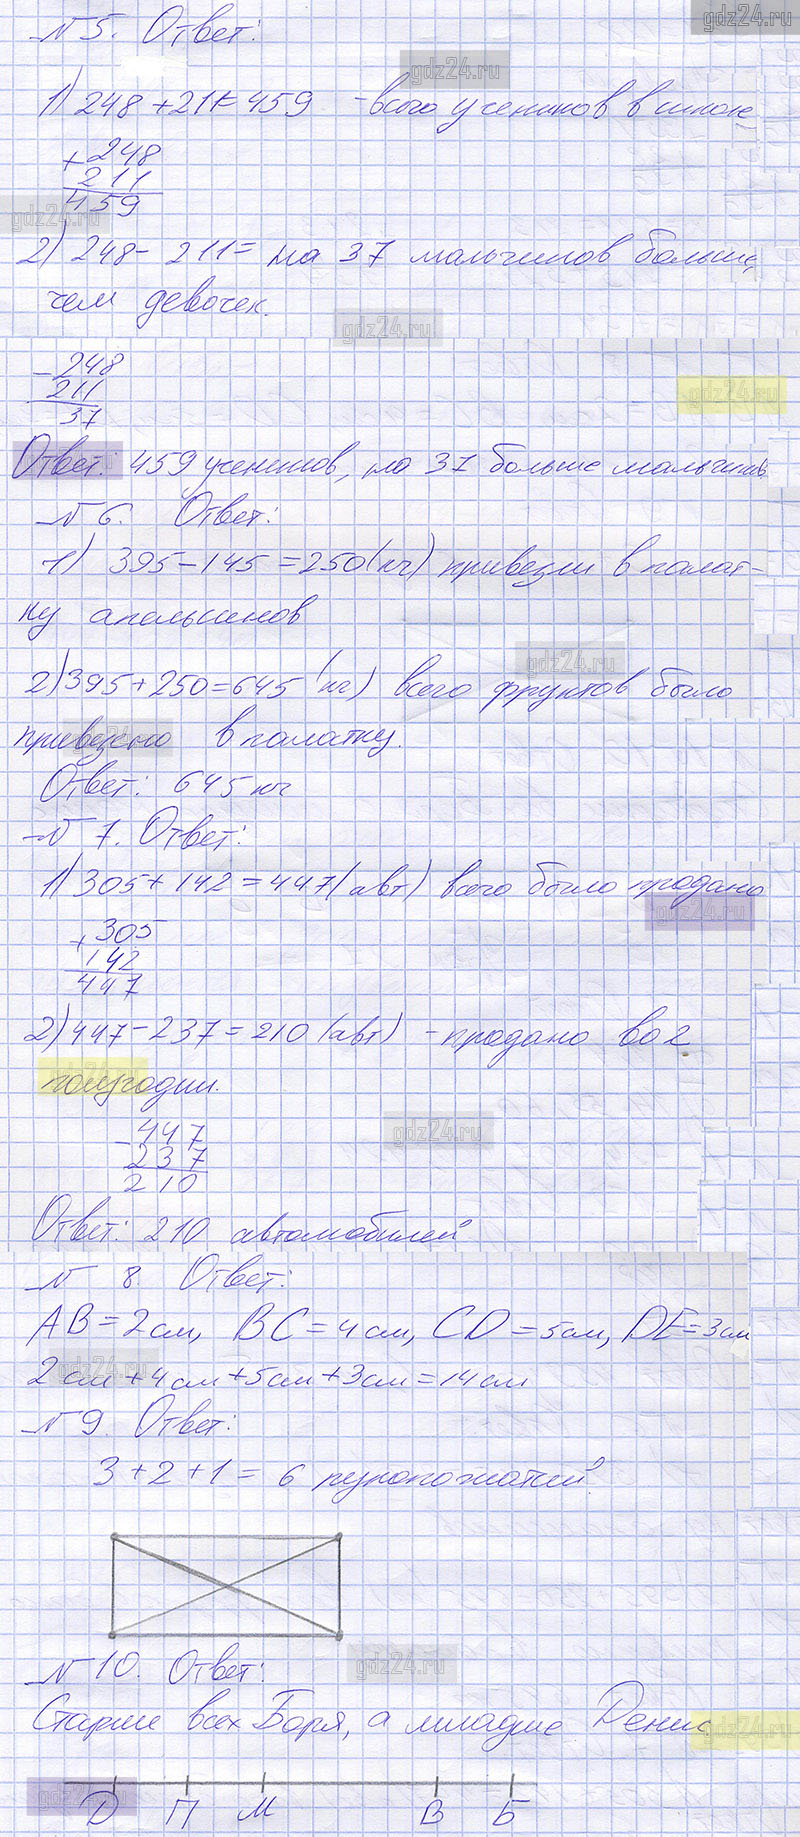 gdz24.ru
№ 5. Ответ:
gdz24.ru
1) 248 + 211 = 459 - всего учеников в школе
+ 248
211
459
gdz24.ru
2) 248 - 211 = на 37 мальчиков больше,
чем девочек.
gdz24.ru
- 248
211
37
gdz24.ru
Ответ: 459 учеников, на 37 больше мальчиков
№ 6. Ответ:
1) 395 - 145 = 250 (кг) привезли в палат-
ку апельсинов
gdz24.ru
2) 395 + 250 = 645 (кг) всего фруктов было
привезено в палатку.
gdz24.ru
Ответ: 645 кг
№ 7. Ответ:
1) 305 + 142 = 447 (авт) всего было продано
gdz24.ru
+ 305
142
447
2) 447 - 237 = 210 (авт) - продано во 2
полугодии.
gdz24.ru
gdz24.ru
- 447
237
210
Ответ: 210 автомобилей
№ 8. Ответ:
AB = 2 см, BC = 4 см, CD = 5 см, DE = 3 см
gdz24.ru
2 см + 4 см + 5 см + 3 см = 14 см
№ 9. Ответ:
3 + 2 + 1 = 6 рукопожатий.
№ 10. Ответ:
gdz24.ru
Старше всех Боря, а младше Денис
gdz24.ru
Д П М В Б